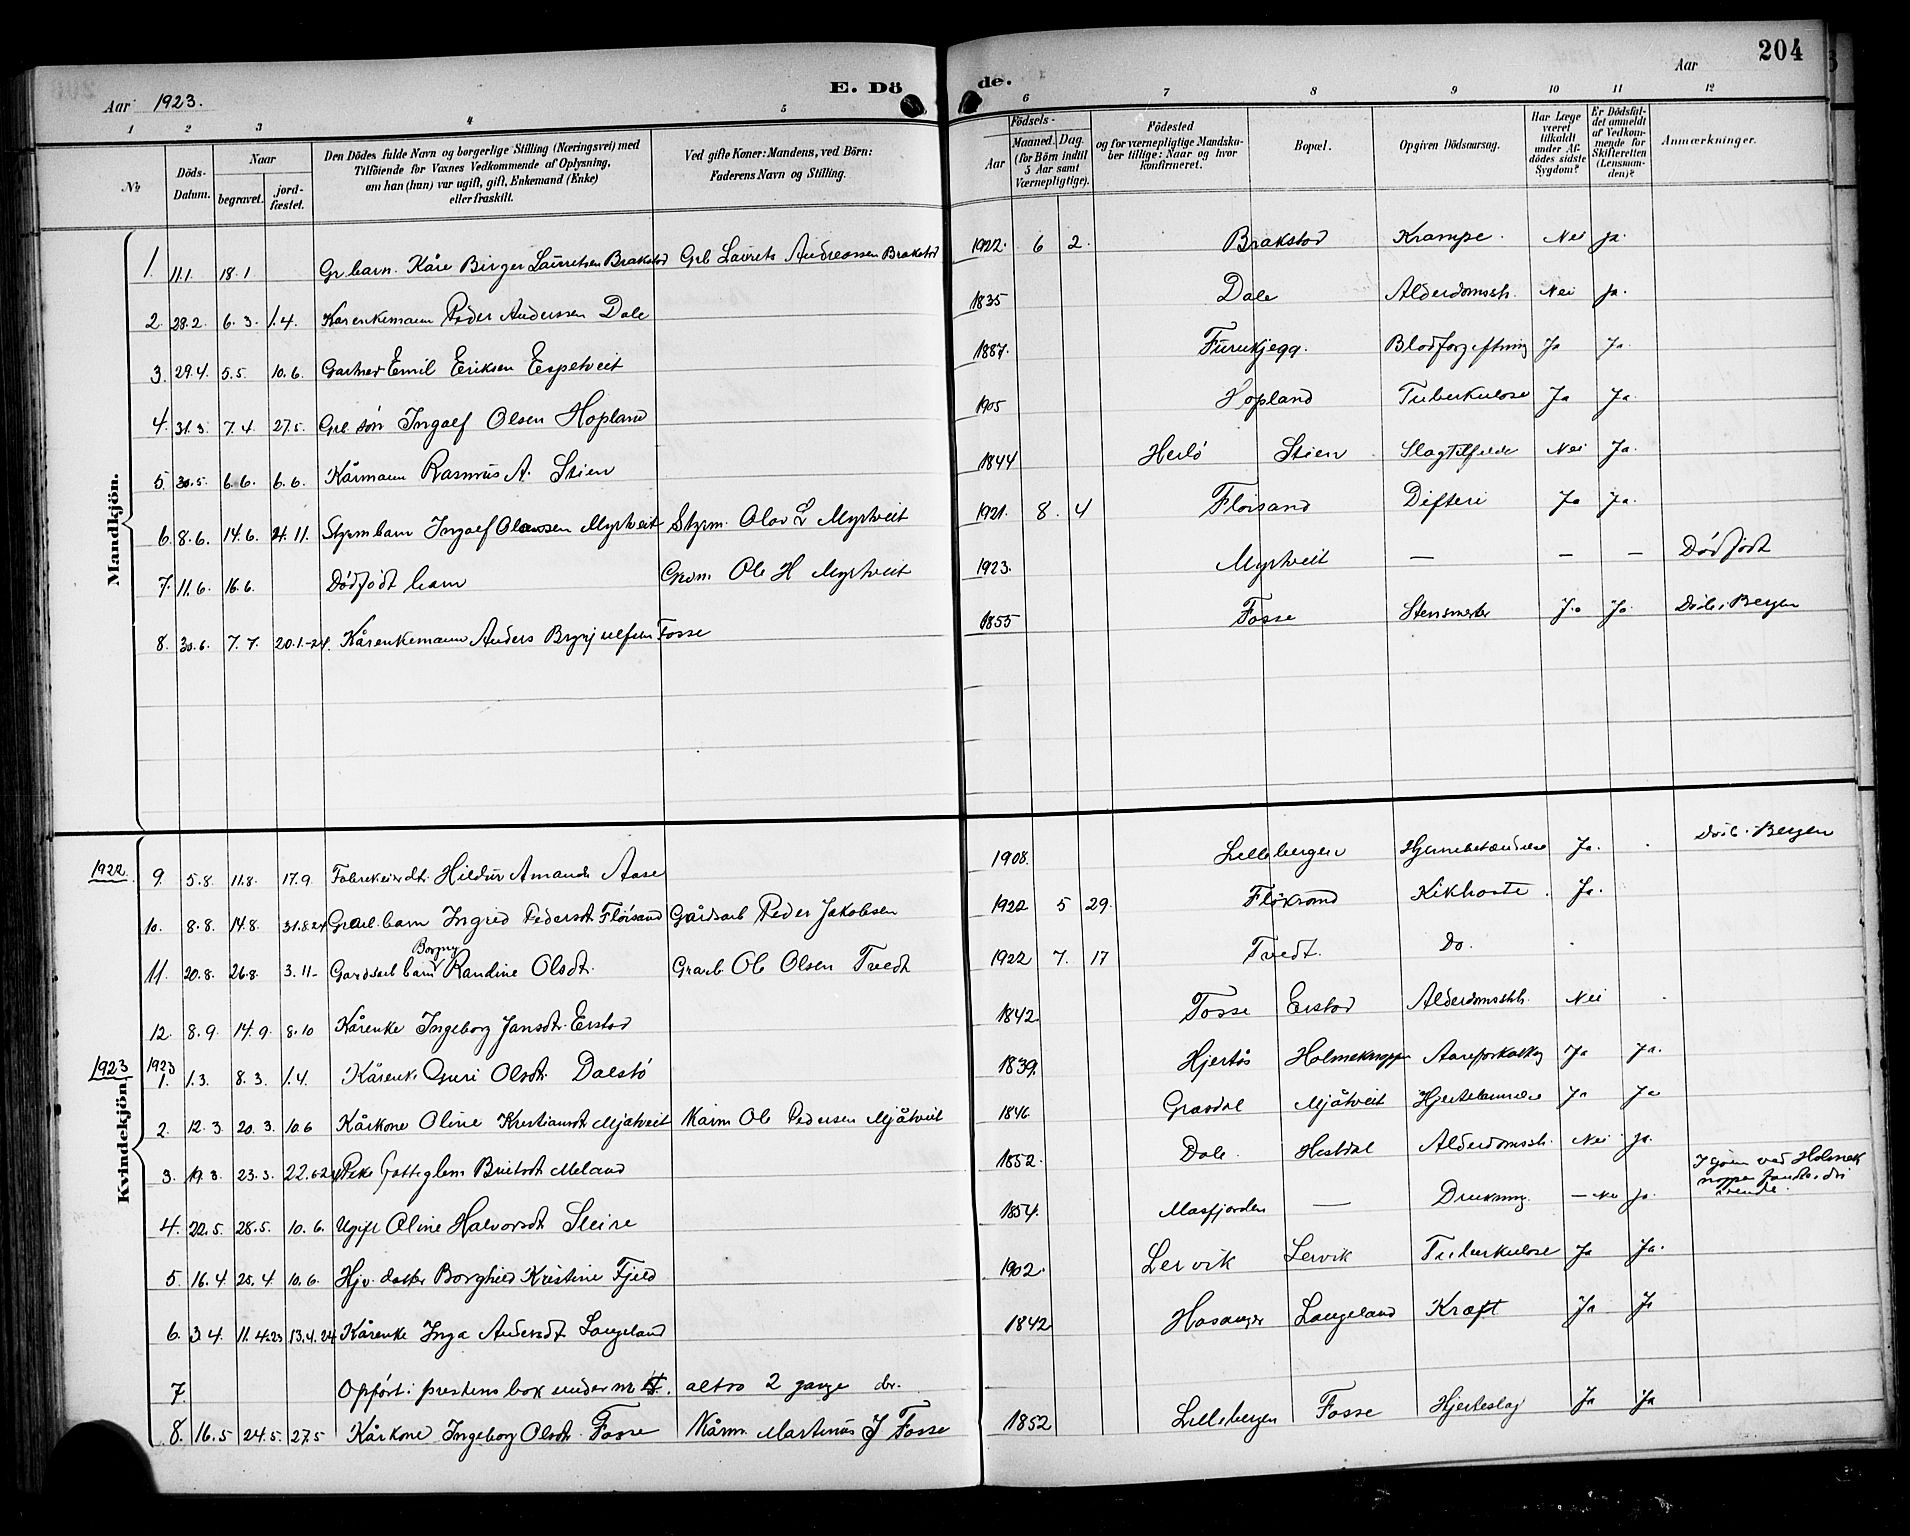 204
Aar 1923.
E. Döde.
Aar
1 2 3 4 5 6 7 8 9 10 11 12
No
Döds-Datum.
Naar
begravet.
jord-fæstet.
Den Dödes fulde Navn og borgerlige Stilling (Næringsvei) med
Tilföiende for Voxnes Vedkommende af Oplysning,
om han (hun) var ugift, gift, Enkemand (Enke)
eller fraskilt.
Ved gifte Koner: Mandens, ved Börn:
Faderens Navn og Stilling.
Födsels-
Aar
Maaned. Dag.
(for Börn indtil
5 Aar samt
Værnepligtige).
Födested
og for værnepligtige Mandska-
ber tillige: Naar og hvor
konfirmeret.
Bopæl.
Opgiven Dödsaarsag.
Har Læge
været
tilkaldt
under Af-
dödes sidste
Sygdom?
Er Dödsfal-
det anmeldt
af Vedkom-
mende for
Skifteretten
(Lensman-
den)?
Anmærkninger.
Mandkjön.
1. 11.1 18.1 Gr barn. Kåre Birger Lauritsen Brakstad Grb Laurits Andreassen Brakstad 1922. 6 2. Brakstad Krampe. Nei ja.
2. 28.2. 6.3. 1.4. Kårenkemann Peder Anderssen Dale 1835 Dale Alderdomssh. Nei ja.
3. 29.4. 5.5. 10.6. Gartner Emil Eriksen Espetveit 1887. Furukjegg. Blodforgiftning Ja Ja.
4. 31.3. 7.4. 27.5. Grb søn Ingolf Olsen Hopland 1905 Hopland Tuberkulose Ja Ja.
5. 30.5. 6.6. 6.6. Kårmann Rasmus A. Stien 1844 Herlö Stien Slagtilfelde Nei Ja.
6. 8.6. 14.6. 24.11. Styrm barn Ingolf Olavssen Myrtveit Styrm. Olav L Myrtveit 1921. 8. 4 Floisand Difteri Ja Ja.
7. 11.6. 16.6. Dödfödt barn Grdm. Ole H Myrtveit 1923. Myrtveit — — — Dödfödt
8. 30.6. 7.7. 20.1.-24. Kårenkemann Anders Brynjulfsen Fosse 1855 Fosse Stensmerter Ja Ja. Död i Bergen
1922.
9. 5.8. 11.8. 17.9. Hildur Amanda Aase 1908. Lillebergen Hjernebetændelse Ja. Död i Bergen
10. 8.8. 14.8. 31.8.24 barn Ingrid Pedersdt. Flöisand Gårdsarb Peder Jakobsen 1922 5 29. Kikhoste. Ja.
11. 20.8. 26.8. 3.11- Gardsarb barn Borgny Randine Olsdt. Grarb. Ole Olsen Tvedt 1922 7. 17 Tvedt. Do.
12. 8.9. 14.9. 8.10 Kårenke Ingeborg Jansdt. Erstad 1842. Fosse Erstad Alderdomssh. Nei
1923 Kvindekjön.
1923
1. 1.3. 8.3. 1.4. Kårenke Guri Olsdt. Dalstö 1839. Hjertås Holmeknappen Aareforkalkg Ja Ja.
2. 12.3. 20.3. 10.6 Kårkone Oline Kristiansdt Mjåtveit Kårm Ole Pedersen Mjåtveit 1846 Grasdal Mjåtveit Hjertelammelse Ja Ja
3. 19.3. 23.3. 22.6.24 Pike Brita Meland 1852. Dale. Hestdal Alderdomssh. Nei. Ja.
4. 22.5. 28.5. 10.6. Ugift Oline Halvorsdt Steine 1854. Masfjorden — Drukning — Nei Ja. I sjöen ved Holmeknappen
5. 16.4. 25.4. 10.6. Hjv. datter Borghild Kristine Fjeld 1902. Lervik Lervik Tuberkulose Ja Ja.
6. 3.4. 11.4.23 13.4.24 Kårenke Inga Andersdt Langeland 1842 Hosanger Langeland Kræft Ja Ja
7. Opfört i prestens bok under nr altso 2 gange der.
8. 16.5 24.5. 27.5 Kårkone Ingeborg Olsdt. Fosse Kårm. Martinus J Fosse 1852 Lillebergen Fosse Hjerteslag Ja Ja